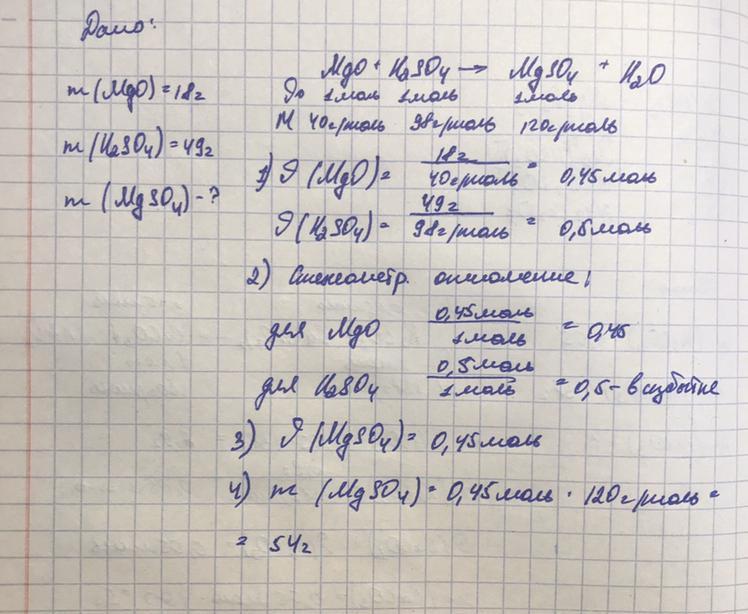 Дано:
MgO + H2SO4 → MgSO4 + H2O
m (MgO) = 18г
1моль 1моль 1моль
m (H2SO4) = 49г
M 40г/моль 98г/моль 120г/моль
m (MgSO4) - ?
1) ν (MgO) = 18г / 40г/моль = 0,45моль
ν (H2SO4) = 49г / 98г/моль = 0,5моль
2) Стехеометр. отношение,
для MgO 0,45моль / 1моль = 0,45
для H2SO4 0,5моль / 1моль = 0,5 - в избытке
3) ν (MgSO4) = 0,45моль
4) m (MgSO4) = 0,45моль · 120г/моль =
= 54г